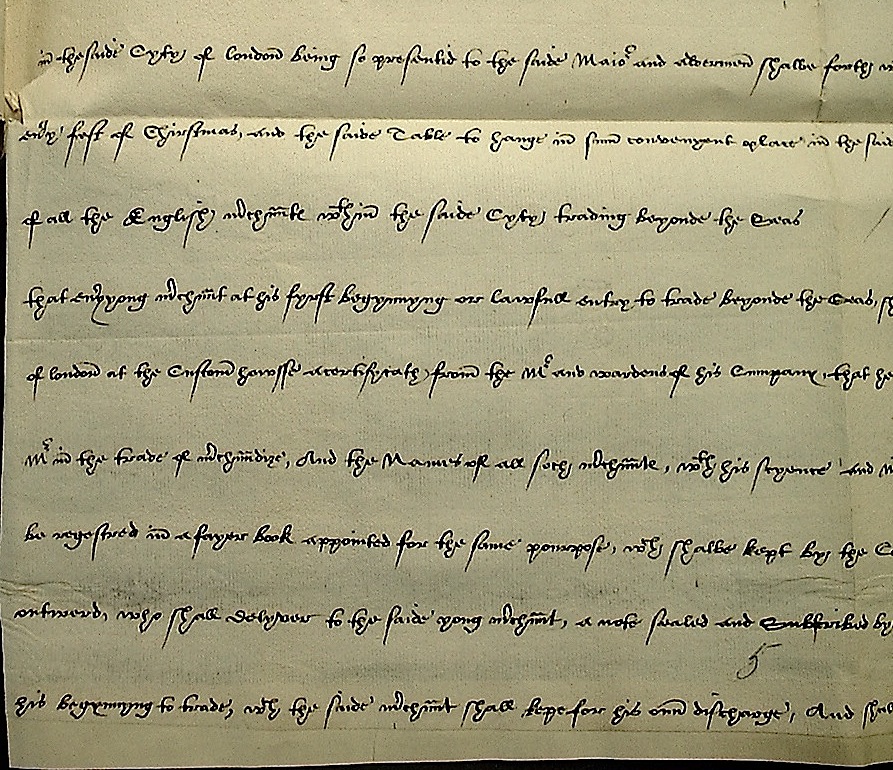 in the saide Cyty of london being so presentid to the saide Maior and aldermen shalbe forth
euery fest of Christmas, and the saide Table to hange in sum convenyent place in the said
of all the English m'chaunts w'thin the saide Cyty trading beyonde the Seas
that eny yong m'chaunt at his fyrst begynnyng or lawfull entry to trade beyonde the Seas,
of london at the Custom howsse a certifycath from the Mr and wardens of his Company, that he
Mr in the trade of m'chaundize, And the Names of all soch m'chaunts, w'th his scyence and
be regestred in a fayer book appointed for the same pourpose, w'ch shalbe kept by the
outward, who shall delyver to the saide yong m'chaunt, a note sealed and Subscribed by
5
his begynnyng to trade, w'ch the saide m'chaunt shall kepe for his own discharge, And shal